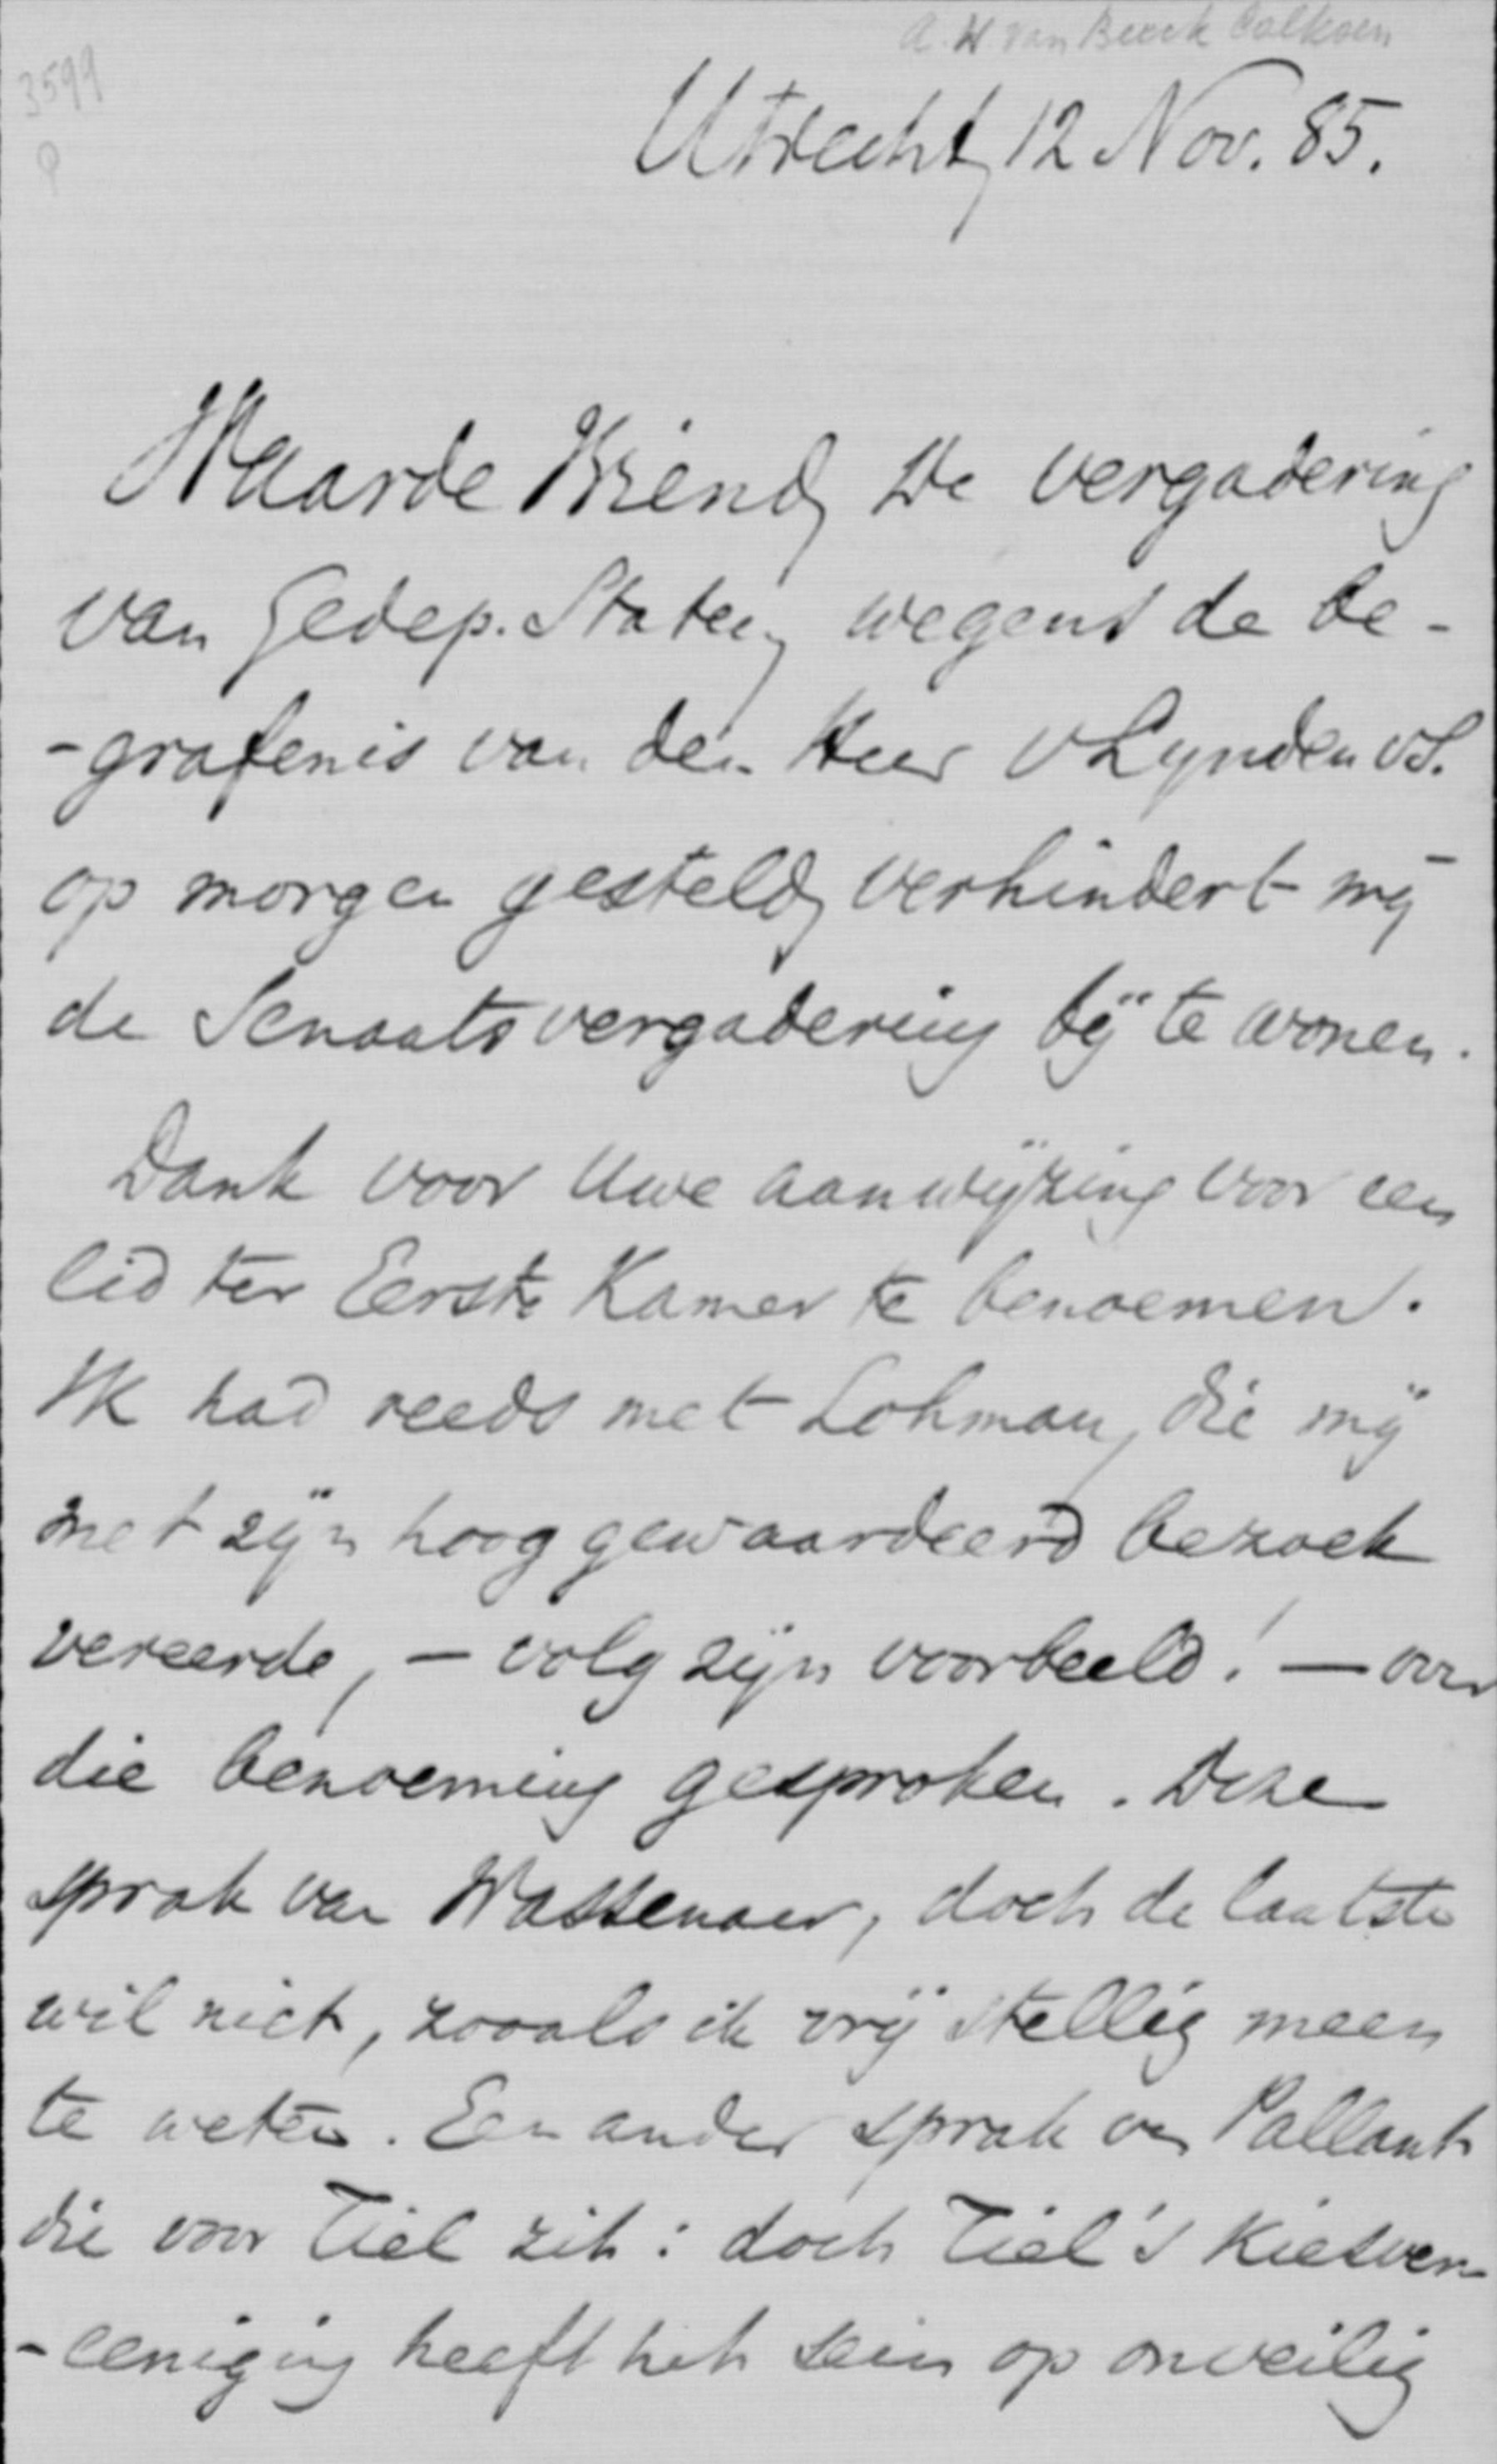 A. W. van Beeck Calkoen
3599
Utrecht, 12 Nov. 85.
Waarde Vriend, De vergadering
van Gedep. Staten, wegens de be-
-grafenis van den Heer v Lynden v S.
op morgen gesteld, verhindert mij
de Senaatsvergadering bij te wonen.
Dank voor Uwe aanwijzing voor een
lid ter Eerste Kamer te benoemen.
Ik had reeds met Lohman, die mij
met zijn hoog gewaardeerd bezoek
vereerde, – volg zijn voorbeeld! – over
die benoeming gesproken. Deze
sprak van Wassenaer, doch de laatste
wil niet, zooals ik vrij stellig meen
te weten. Een ander sprak van Pallandt
die voor Tiel zit: doch Tiel's Kiesver-
-eeniging heeft het sein op onveilig